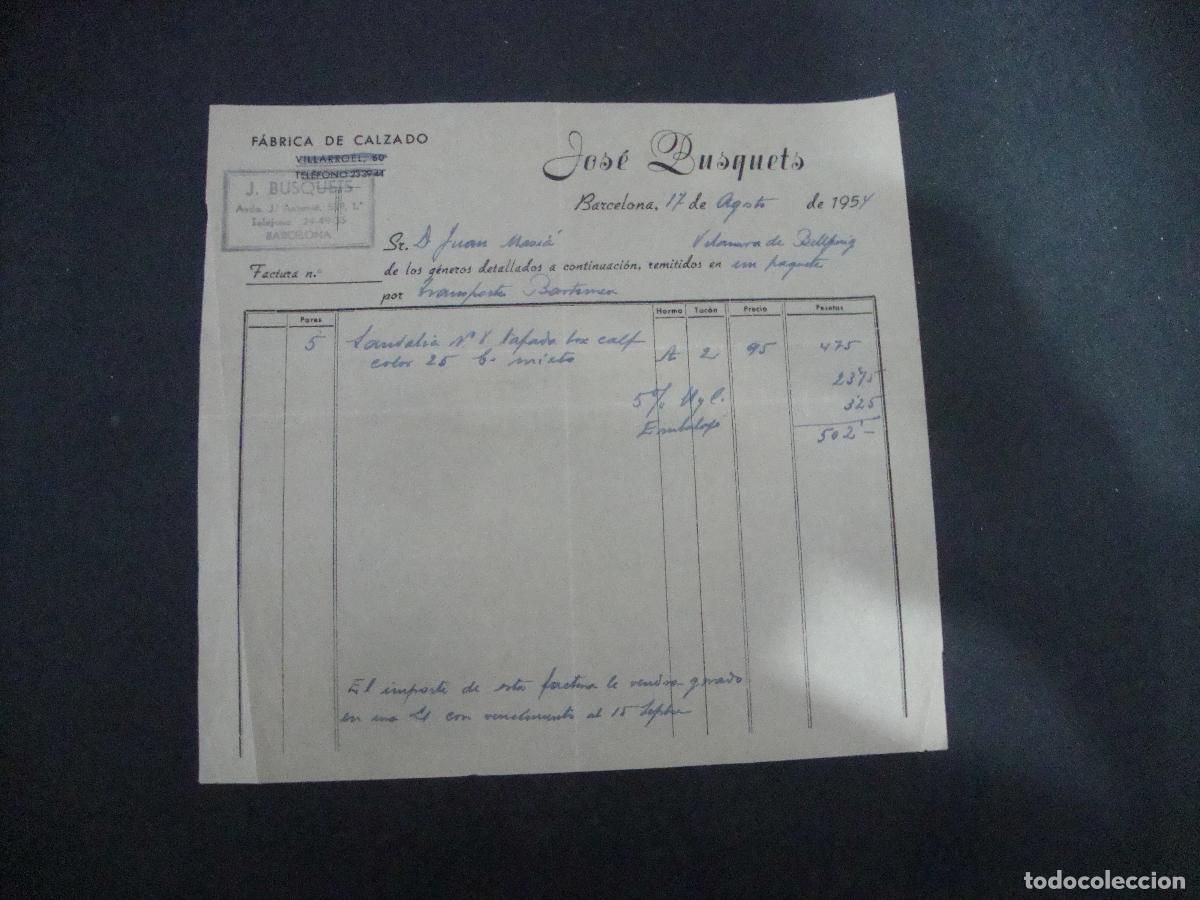 FÁBRICA DE CALZADO
VILLARROEL, 60
TELÉFONO 23-39-44
J. BUSQUETS
Avda. J. Antonio, 1.º
Teléfono 
BARCELONA
José Busquets
Barcelona, 17 de Agosto de 1954
Sr. D. Juan Masiá Vilanova de Bellpuig
Factura n.º
de los géneros detallados a continuación, remitidos en un paquete
por transportes
Pares Horma Tacón Precio Pesetas
5 Sandalia Nº tapada box calf A 2 95 475
color 25 C. mixto
5% U y C. 23'75
Embalaje 3'25
502'-
El importe de esta factura le vendrá girado
en una L/ con vencimiento al 15 Sepbre
todocoleccion